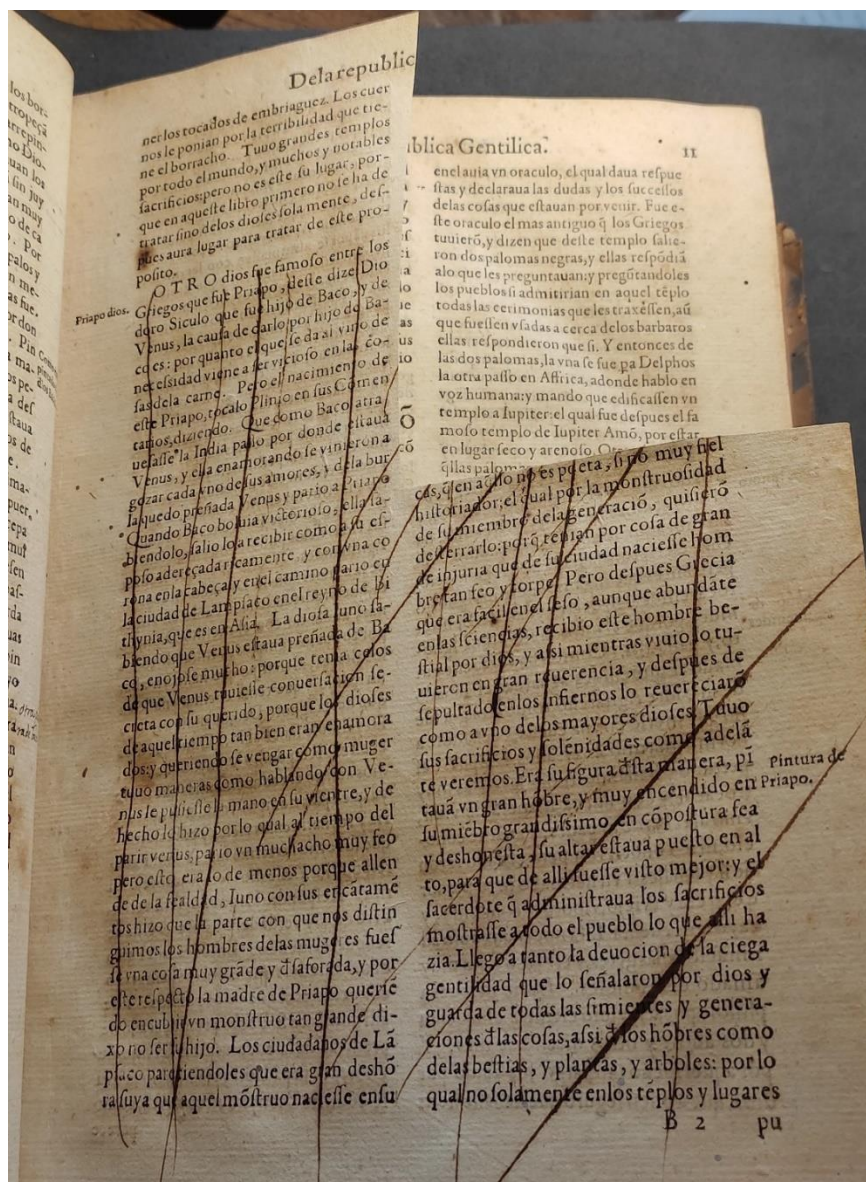 Dela republic
ner los tocados de embriaguez. Los cuer
nos le ponian por la terribilidad que tie-
ne el borracho. Tuuo grandes templos
por todo el mundo, y muchos y notables
sacrificios: pero no es este su lugar, por-
que en aqueste libro primero no se ha de
tratar sino delos dioses sola mente, des-
pues aura lugar para tratar de este pro-
posito.
Priapo dios.
OTRO dios fue famoso entre los
Griegos que fue Priapo, deste dize Dio
doro Siculo que fue hijo de Baco, y de
Venus, la causa de darlo por hijo de Ba-
co es: por quanto el que se da al vino de
necessidad viene a ser vicioso en las co-
sas dela carne. Pero el nacimiento de
este Priapo, tocalo Plinio en sus Comen
tarios, diziendo. Que como Baco atra
uesasse la India passo por donde estaua
Venus, y ella enamorando se vinieron a
gozar cada vno de sus amores, y dela bur
la quedo preñada Venus y pario a Priapo
Quando Baco boluia victorioso, ella sa-
biendolo, salio lo a recibir como a su es-
poso adereçada ricamente y con vna co
rona en la cabeça, y en el camino pario en
la ciudad de Lampsaco enel reyno de Bi
thynia, que es en Asia. La diosa Iuno sa-
biendo que Venus estaua preñada de Ba
co, enojose mucho: porque tenia celos
de que Venus tuuiesse conuersacion se-
creta con su querido, porque los dioses
de aquel tiempo tan bien eran enamora
dos: y queriendo se vengar como muger
tuuo maneras como hablando con Ve-
nus le pusiesse la mano en su vientre, y de
hecho lo hizo por lo qual al tiempo del
parir venus, pario vn muchacho muy feo
pero esto era lo de menos porque allen
de de la fealdad, Iuno con sus encātamē
tos hizo que la parte con que nos distin
guimos los hombres delas mugeres fues
se vna cosa muy grāde y d̄saforada, y por
este respecto la madre de Priapo queriē
do encubrir vn monstruo tan grande di-
xo no ser su hijo. Los ciudadanos de Lā
psaco pareciendoles que era gran deshō
ra suya que aquel mōstruo naciesse en su
blica Gentilica.
11
enel auia vn oraculo, el qual daua respue
stas y declaraua las dudas y los successos
delas cosas que estauan por venir. Fue e-
ste oraculo el mas antiguo q̄ los Griegos
tuuierō, y dizen que deste templo salie-
ron dos palomas negras, y ellas respōdiā
alo que les preguntauan: y pregūtandoles
los pueblos si admitirian en aquel tēplo
todas las cerimonias que les traxessen, aū
que fuessen vsadas a cerca delos barbaros
ellas respondieron que si. Y entonces de
las dos palomas, la vna se fue pa Delphos
la otra passo en Affrica, adonde hablo en
voz humana: y mando que edificassen vn
templo a Iupiter: el qual fue despues el fa
moso templo de Iupiter Amō, por estar
en lugar seco y arenoso.
q̄llas
cas, q̄ en aq̄sto no es poeta, si no muy fiel
historiador; el qual por la monstruosidad
de su miembro dela generació, quisierō
desterrarlo: porq̄ tenian por cosa de gran
de injuria que de su ciudad naciesse hom
bre tan feo y torpe. Pero despues Grecia
que era facil enel seso, aunque abundāte
en las sciencias, recibio este hombre be-
stial por dios, y assi mientras viuio lo tu-
uieron en gran reuerencia, y despues de
sepultado en los infiernos lo reuerēciarō
como a vno delos mayores dioses. Tuuo
sus sacrificios y solēnidades como adelā
te veremos. Era su figura d̄sta manera, pī
Pintura de
Priapo.
tauā vn gran hōbre, y muy encendido en
su miēbro grandissimo en cōpostura fea
y deshonesta, su altar estaua puesto en al
to, para que de alli fuesse visto mejor: y el
sacerdote q̄ administraua los sacrificios
mostrasse a todo el pueblo lo que alli ha
zia. Llego a tanto la deuocion de la ciega
gentilidad que lo señalaron por dios y
guarda de todas las simientes y genera-
ciones d̄ las cosas, assi d̄ los hōbres como
delas bestias, y plantas, y arboles: por lo
qual no solamente enlos tēplos y lugares
B 2 pu